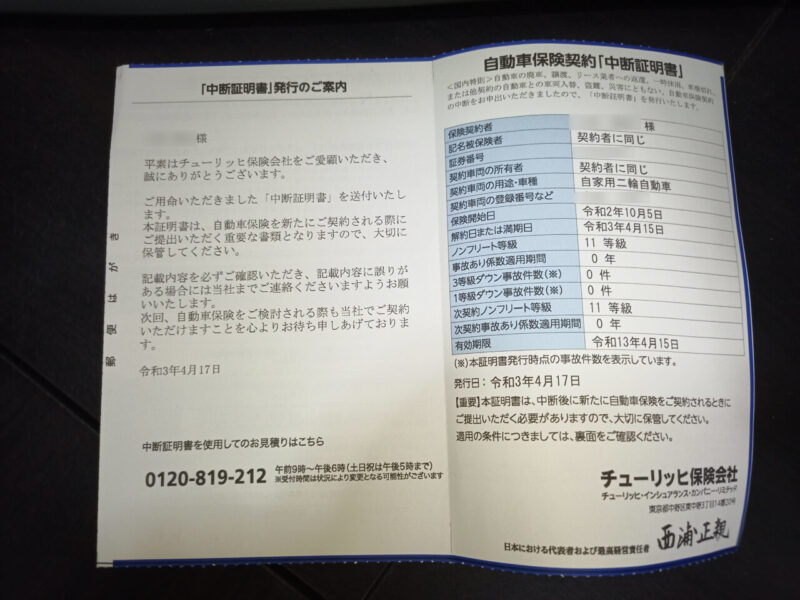 「中断証明書」発行のご案内
様
平素はチューリッヒ保険会社をご愛顧いただき、
誠にありがとうございます。
ご用命いただきました「中断証明書」を送付いたし
ます。
本証明書は、自動車保険を新たにご契約される際に
ご提出いただく重要な書類となりますので、大切に
保管してください。
記載内容を必ずご確認いただき、記載内容に誤りが
ある場合には当社までご連絡くださいますようお願
いいたします。
次回、自動車保険をご検討される際も当社でご契約
いただけますことを心よりお待ち申しあげておりま
す。
令和3年4月17日
中断証明書を使用してのお見積りはこちら
0120-819-212 午前9時～午後6時(土日祝は午後5時まで)
※受付時間は状況により変更となる可能性がございます
郵便はがき
自動車保険契約「中断証明書」
＜国内特則＞自動車の廃車、譲渡、リース業者への返還、一時抹消、車検切れ、
または他契約の自動車との車両入替、盗難、災害にともない、自動車保険契約
の中断をお申出いただきましたので、「中断証明書」を発行いたします。
保険契約者 様
記名被保険者 契約者に同じ
証券番号
契約車両の所有者 契約者に同じ
契約車両の用途・車種 自家用二輪自動車
契約車両の登録番号など
保険開始日 令和2年10月5日
解約日または満期日 令和3年4月15日
ノンフリート等級 11 等級
事故あり係数適用期間 0 年
3等級ダウン事故件数(※) 0 件
1等級ダウン事故件数(※) 0 件
次契約ノンフリート等級 11 等級
次契約事故あり係数適用期間 0 年
有効期限 令和13年4月15日
(※)本証明書発行時点の事故件数を表示しています。
発行日：令和3年4月17日
【重要】本証明書は、中断後に新たに自動車保険をご契約されるときに
ご提出いただく必要がありますので、大切に保管してください。
適用の条件につきましては、裏面をご確認ください。
チューリッヒ保険会社
チューリッヒ・インシュアランス・カンパニー・リミテッド
東京都中野区東中野3丁目14番20号
日本における代表者および最高経営責任者 西浦正親